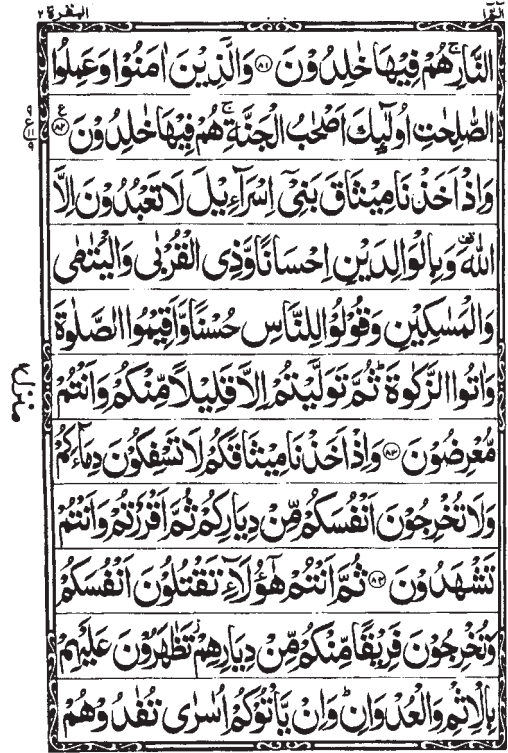 الٓمّٓ ١
البقرة ٢
النَّارِ ۚ هُمْ فِيْهَا خٰلِدُوْنَ ﴿٨١﴾ وَالَّذِيْنَ اٰمَنُوْا وَعَمِلُوا
الصّٰلِحٰتِ اُولٰٓئِكَ اَصْحٰبُ الْجَنَّةِ ۚ هُمْ فِيْهَا خٰلِدُوْنَ ﴿٨٢﴾ ع
٩
ع ١١
٩
وَاِذْ اَخَذْنَا مِيْثَاقَ بَنِيْٓ اِسْرَآءِيْلَ لَا تَعْبُدُوْنَ اِلَّا
اللّٰهَ ۫ وَبِالْوَالِدَيْنِ اِحْسَانًا وَّذِي الْقُرْبٰى وَالْيَتٰمٰى
وَالْمَسٰكِيْنِ وَقُوْلُوْا لِلنَّاسِ حُسْنًا وَّاَقِيْمُوا الصَّلٰوةَ
وَاٰتُوا الزَّكٰوةَ ؕ ثُمَّ تَوَلَّيْتُمْ اِلَّا قَلِيْلًا مِّنْكُمْ وَاَنْتُمْ
مُّعْرِضُوْنَ ﴿٨٣﴾ وَاِذْ اَخَذْنَا مِيْثَاقَكُمْ لَا تَسْفِكُوْنَ دِمَآءَكُمْ
وَلَا تُخْرِجُوْنَ اَنْفُسَكُمْ مِّنْ دِيَارِكُمْ ثُمَّ اَقْرَرْتُمْ وَاَنْتُمْ
تَشْهَدُوْنَ ﴿٨٤﴾ ثُمَّ اَنْتُمْ هٰٓؤُلَآءِ تَقْتُلُوْنَ اَنْفُسَكُمْ
وَتُخْرِجُوْنَ فَرِيْقًا مِّنْكُمْ مِّنْ دِيَارِهِمْ ۫ تَظٰهَرُوْنَ عَلَيْهِمْ
بِالْاِثْمِ وَالْعُدْوَانِ ؕ وَاِنْ يَّاْتُوْكُمْ اُسٰرٰى تُفٰدُوْهُمْ
منزل ١